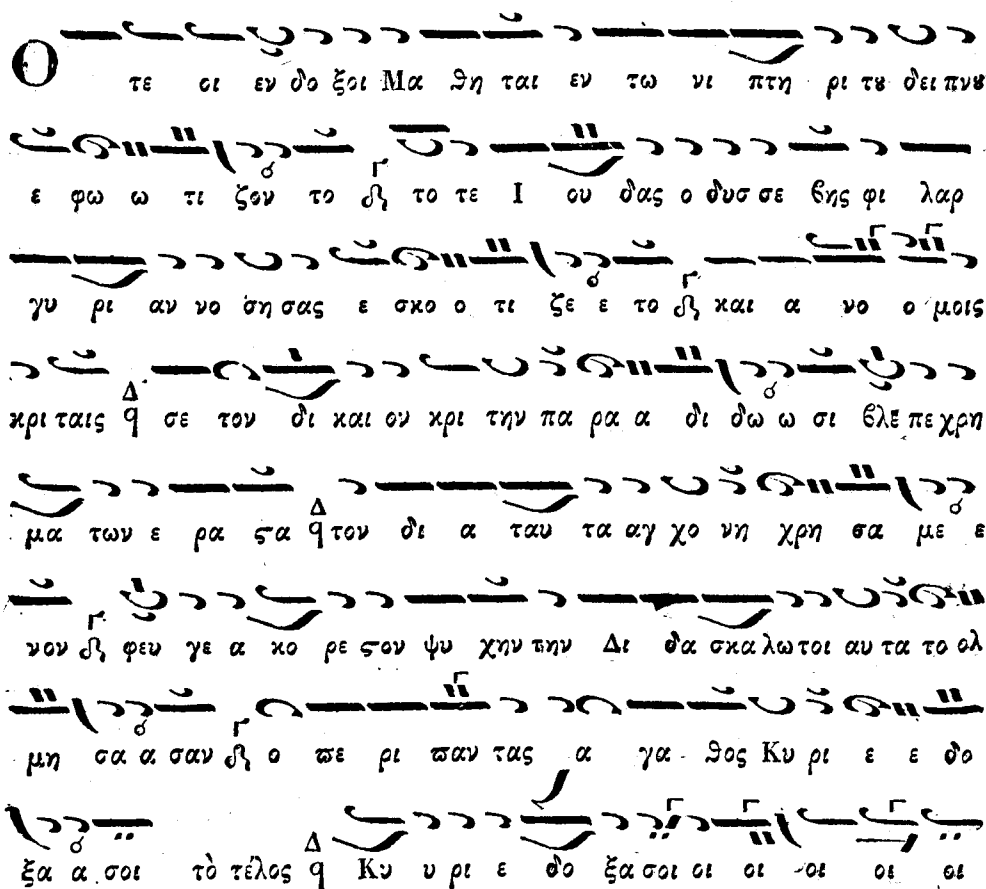 Ο τε οι εν δο ξοι Μα θη ται εν τω νι πτη ρι τȣ δει πνȣ
ε φω ω τι ζον το το τε Ι ου δας ο δυσ σε βης φι λαρ
γυ ρι αν νο ση σας ε σκο ο τι ζε ε το και α νο ο μοις
κρι ταις σε τον δι και ον κρι την πα ρα α δι δω ω σι βλε πε χρη
μα των ε ρα ϛα τον δι α ταυ τα αγ χο νη χρη σα με ε
νον φευ γε α κο ρε ϛον ψυ χην την Δι δα σκα λω τοι αυ τα το ολ
μη σα α σαν ο πε ρι παν τας α γα θος Κυ ρι ε ε δο
ξα α σοι τὸ τέλος Κυ υ ρι ε δο ξα σοι οι οι οι οι οι